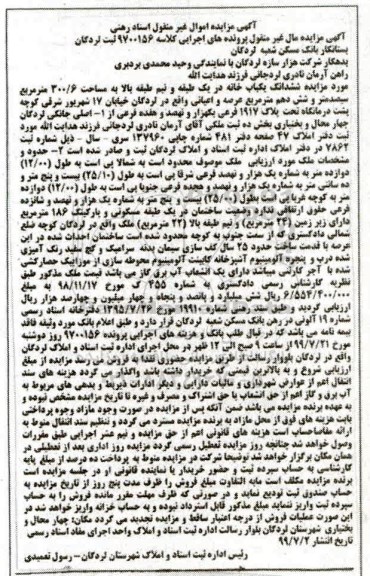 آگهی مزایده اموال غیر منقول اسناد رهنی
آگهی مزایده مال غیر منقول پرونده های اجرایی کلاسه ۹۷۰۰۱۵۶ ثبت لردگان
بستانکار بانک مسکن شعبه لردگان
بدهکار شرکت هزار سازه لردگان با نمایندگی وحید محمدی بردبری
راهن آرمان نادری لردجانی فرزند هدایت الله
مورد مزایده ششدانگ یکباب خانه در یک طبقه و نیم طبقه بالا به مساحت ۳۰۰/۶ مترمربع
سیصدمتر و شش دهم مترمربع عرصه و اعیانی واقع در لردگان خیابان ۱۷ شهریور شرقی کوچه
پشت درمانگاه تحت پلاک ۱۹۱۷ فرعی یکهزار و نهصد و هفده فرعی از ۱- اصلی جانکی لردگان
چهار محال و بختیاری بخش ده ثبت ملکی آقای آرمان نادری لردجانی فرزند هدایت الله مورد
ثبت دفتر املاک ۴۷ صفحه دفتر ۴۸۱ شماره چاپی ۱۳۷۹۶۰ سری - سال ذیل شماره ثبت
۷۸۶۲ در دفتر املاک اداره ثبت اسناد و املاک لردگان ثبت و صادر شده است ۲- حدود و
مشخصات ملک مورد ارزیابی ملک موصوف محدود است به شمالا پی است به طول (۱۲/۰۰)
دوازده متر به شماره یک هزار و نهصد و فرعی شرقا پی است به طول (۲۵/۱۰) بیست و پنج متر و
ده سانتی متر به شماره یک هزار و نهصد و هجده فرعی جنوبا پی است به طول (۱۲/۰۰) دوازده
متر به کوچه غربا پی است بطول (۲۵/۰۰) بیست و پنج متر به شماره یک هزار و نهصد و شانزده
فرعی حقوق ارتفاقی ندارد وضعیت ساختمان در یک طبقه مسکونی و پارکینگ ۱۸۶ مترمربع
دارای زیر زمین (۲۴ مترمربع) و نیم طبقه بالا (۲۲ مترمربع) ملک واقع در لردگان کوچه ضلع
شمالی دادگستری که از سمت جنوب به کوچه محدود شده است ساختمان احداث شده در این
عرصه با قدمت ساخت حدود ۲۵ سال کف سازی سیمان بدنه سرامیک و گچ سفید رنگ آمیزی
شده درب و پنجره آلومینیوم آشپزخانه کابینت آلومینیوم محوطه سازی از موزاییک حصارکشی
شده با آجر کارتنی میباشد دارای یک انشعاب آب برق گاز می باشد قیمت ملک مذکور طبق
نظریه کارشناس رسمی دادگستری به شماره ۴۵۵ ک مورخ ۹۸/۱۱/۱۷ به مبلغ
۶/۵۵۴/۴۰۰/۰۰۰ ریال شش میلیارد و پانصد و پنجاه و چهار میلیون و چهارصد هزار ریال
ارزیابی گردید و طبق سند رهنی شماره ۱۹۹۱۰ مورخ ۱۳۹۵/۷/۲۶ دفترخانه اسناد رسمی
شماره ۱۹ آلونی در رهن بانک مسکن شعبه لردگان قرار دارد و طبق اعلام بانک مورد وثیقه فاقد
بیمه نامه می باشد که در قبال طلب بانک و هزینه های اجرایی پرونده ۹۷۰۰۱۵۶ روز دوشنبه
مورخ ۹۹/۷/۲۱ از ساعت ۹ صبح الی ۱۲ ظهر در محل اجرای اداره ثبت اسناد و املاک لردگان
واقع در لردگان بلوار رسالت از طریق مزایده حضوری نقدا به فروش می رسد مزایده از مبلغ
ارزیابی شروع و به بالاترین قیمتی که خریدار داشته باشد واگذار می گردد هزینه های سند
انتقال اعم از عوارض شهرداری و مالیات دارایی و دیگر ادارات ذیربط و بدهی های مربوط به
آب برق و گاز اعم از حق انشعاب یا حق اشتراک و مصرف و غیره تا تاریخ مزایده مشخص نبوده و
به عهده برنده مزایده می باشد ضمن آنکه پس از مزایده در صورت وجود مازاد وجوه پرداختی
بابت هزینه های فوق از محل مازاد به برنده مزایده مسترد می گردد و تنظیم سند انتقال منوط به
ارائه مفاصاحساب است هزینه های قانونی اعم از حق مزایده و نیم عشر اجرایی طبق مقررات
وصول خواهد شد چنانچه روز مزایده تعطیل رسمی گردد مزایده روز اداری بعد از تعطیلی در
همان مکان برگزار خواهد شد توضیحا شرکت در مزایده منوط به پرداخت ده درصد از مبلغ پایه
کارشناسی به حساب سپرده ثبت و حضور خریدار یا نماینده قانونی او در جلسه مزایده است
برنده مزایده مکلف است مابه التفاوت مبلغ فروش را ظرف مدت پنج روز از تاریخ مزایده به
حساب صندوق ثبت تودیع نماید و در صورتی که ظرف مهلت مقرر مانده فروش را به حساب
سپرده ثبت واریز ننماید مبلغ مذکور قابل استرداد نبوده و به حساب خزانه واریز خواهد شد در
این صورت عملیات فروش از درجه اعتبار ساقط و مزایده تجدید می گردد مکان: چهار محال و
بختیاری شهرستان لردگان بلوار رسالت اداره ثبت اسناد و املاک واحد اجرای مفاد اسناد رسمی
تاریخ انتشار ۹۹/۷/۲
رئیس اداره ثبت اسناد و املاک شهرستان لردگان - رسول تعمیدی